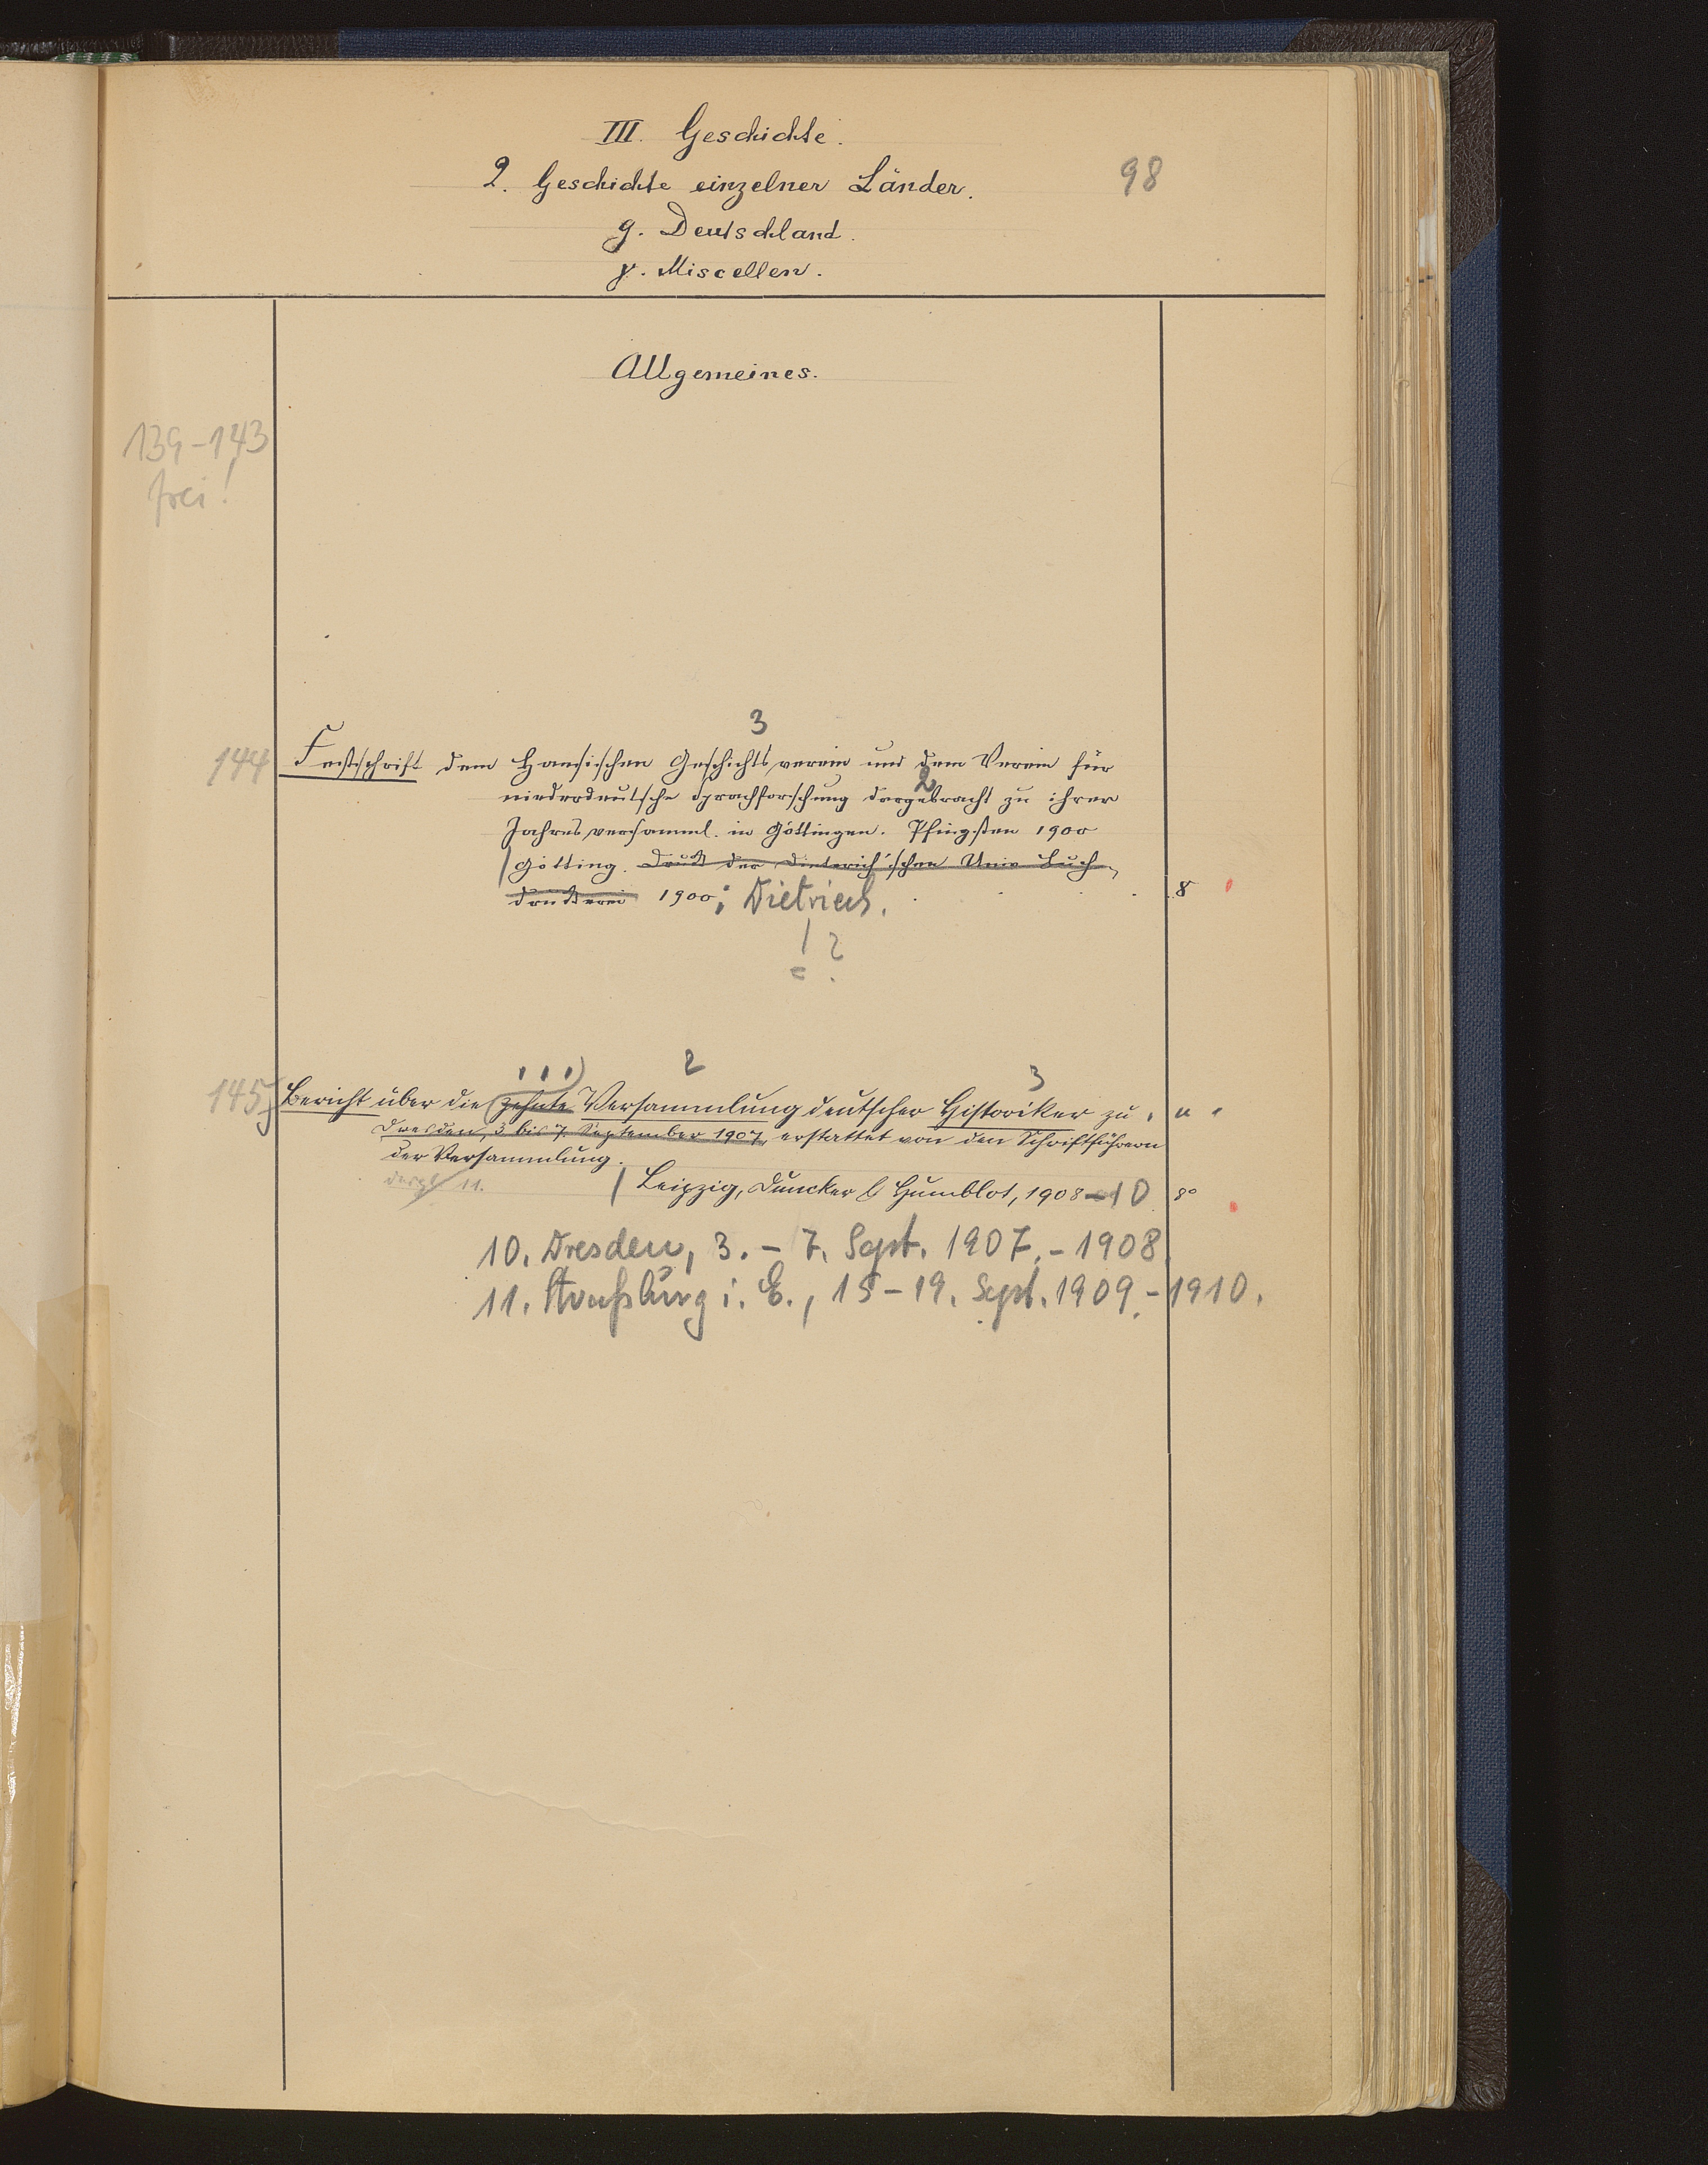 III. Geschichte.
2. Geschichte einzelner Länder.
98
g. Deutschland.
γ. Miscellen.
Allgemeines.
139-143
frei!
3
144 Festschrift dem Hansischen Geschichtsverein und dem Verein für
2
niederdeutsche Sprachforschung dargebracht zu ihrer
Jahresversamml. in Göttingen. Pfingsten 1900
Götting. Druck der Dieterich'schen Univ Buch-
druckerei 1900; Dietrich. 8
! ?
2 3
145 Bericht über die zehnte Versammlung deutscher Historiker zu
Dresden, 3 bis 7. September 1907, erstattet von den Schriftführern
der Versammlung.
11. Leipzig, Duncker & Humblot, 1908-10 8°
10. Dresden, 3. - 7. Sept. 1907. - 1908.
11. Straßburg i. E., 15-19. Sept. 1909. - 1910.